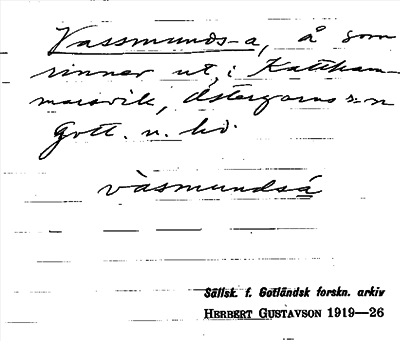 Vassmunds-a, å som
rinner ut i Kattham-
marsvik, Östergarns s:n
Gotl. n. hd.
vàsmundsá
Sällsk. f. Gotländsk forskn. arkiv
HERBERT GUSTAVSON 1919—26